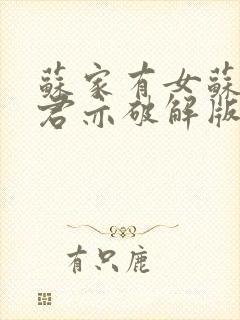 蘇家有女蘇
君亦破解版
有只鹿